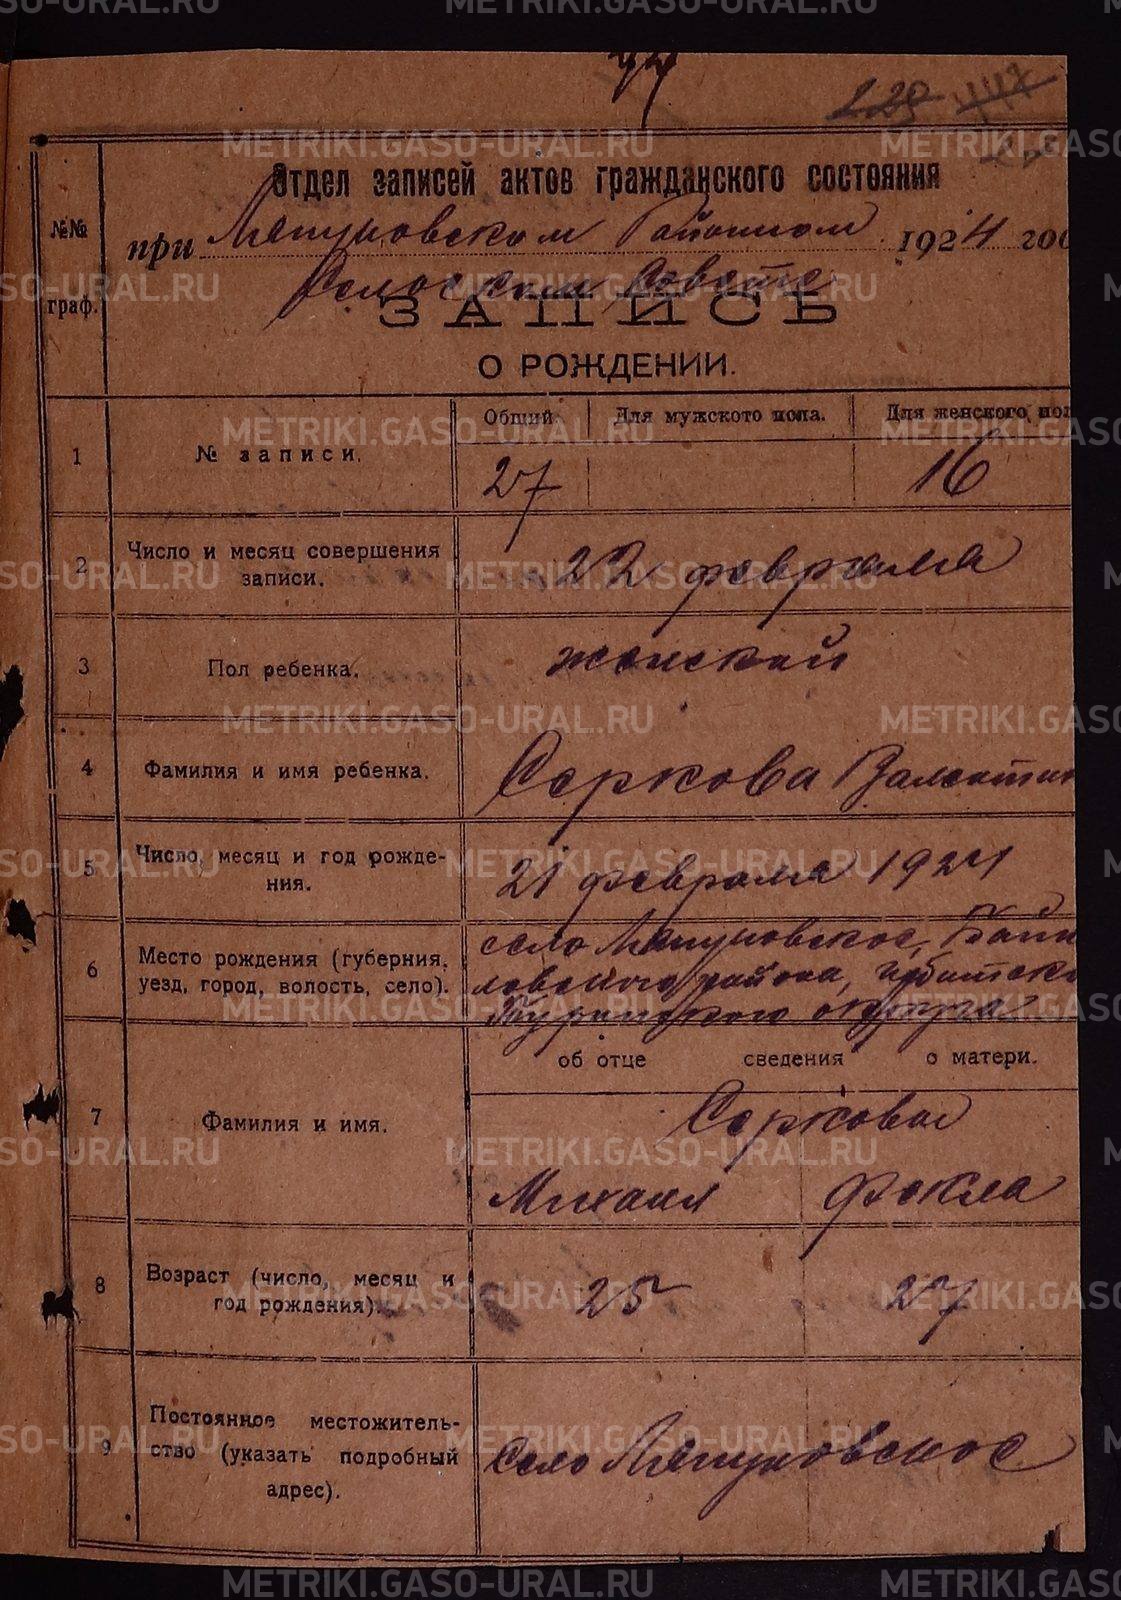 229 447
Отдел записей актов гражданского состояния
№№ граф.
при Ляпуновском Районном 1924 год
Селоском Совете
ЗАПИСЬ
О РОЖДЕНИИ.
1 № записи. Общий Для мужского пола. Для женского пол
27 16
2 Число и месяц совершения записи. 22 февраля
3 Пол ребенка. женской
4 Фамилия и имя ребенка. Серкова Валентин
5 Число, месяц и год рождения. 21 февраля 1924
6 Место рождения (губерния, уезд, город, волость, село). село Ляпуновское, Байка
ловского района, Ирбитско
Туринского округа
об отце сведения о матери.
7 Фамилия и имя. Серковы
Михаил Фекла
8 Возраст (число, месяц и год рождения). 25 27
9 Постоянное местожительство (указать подробный адрес). Село Ляпуновское
METRIKI.GASO-URAL.RU